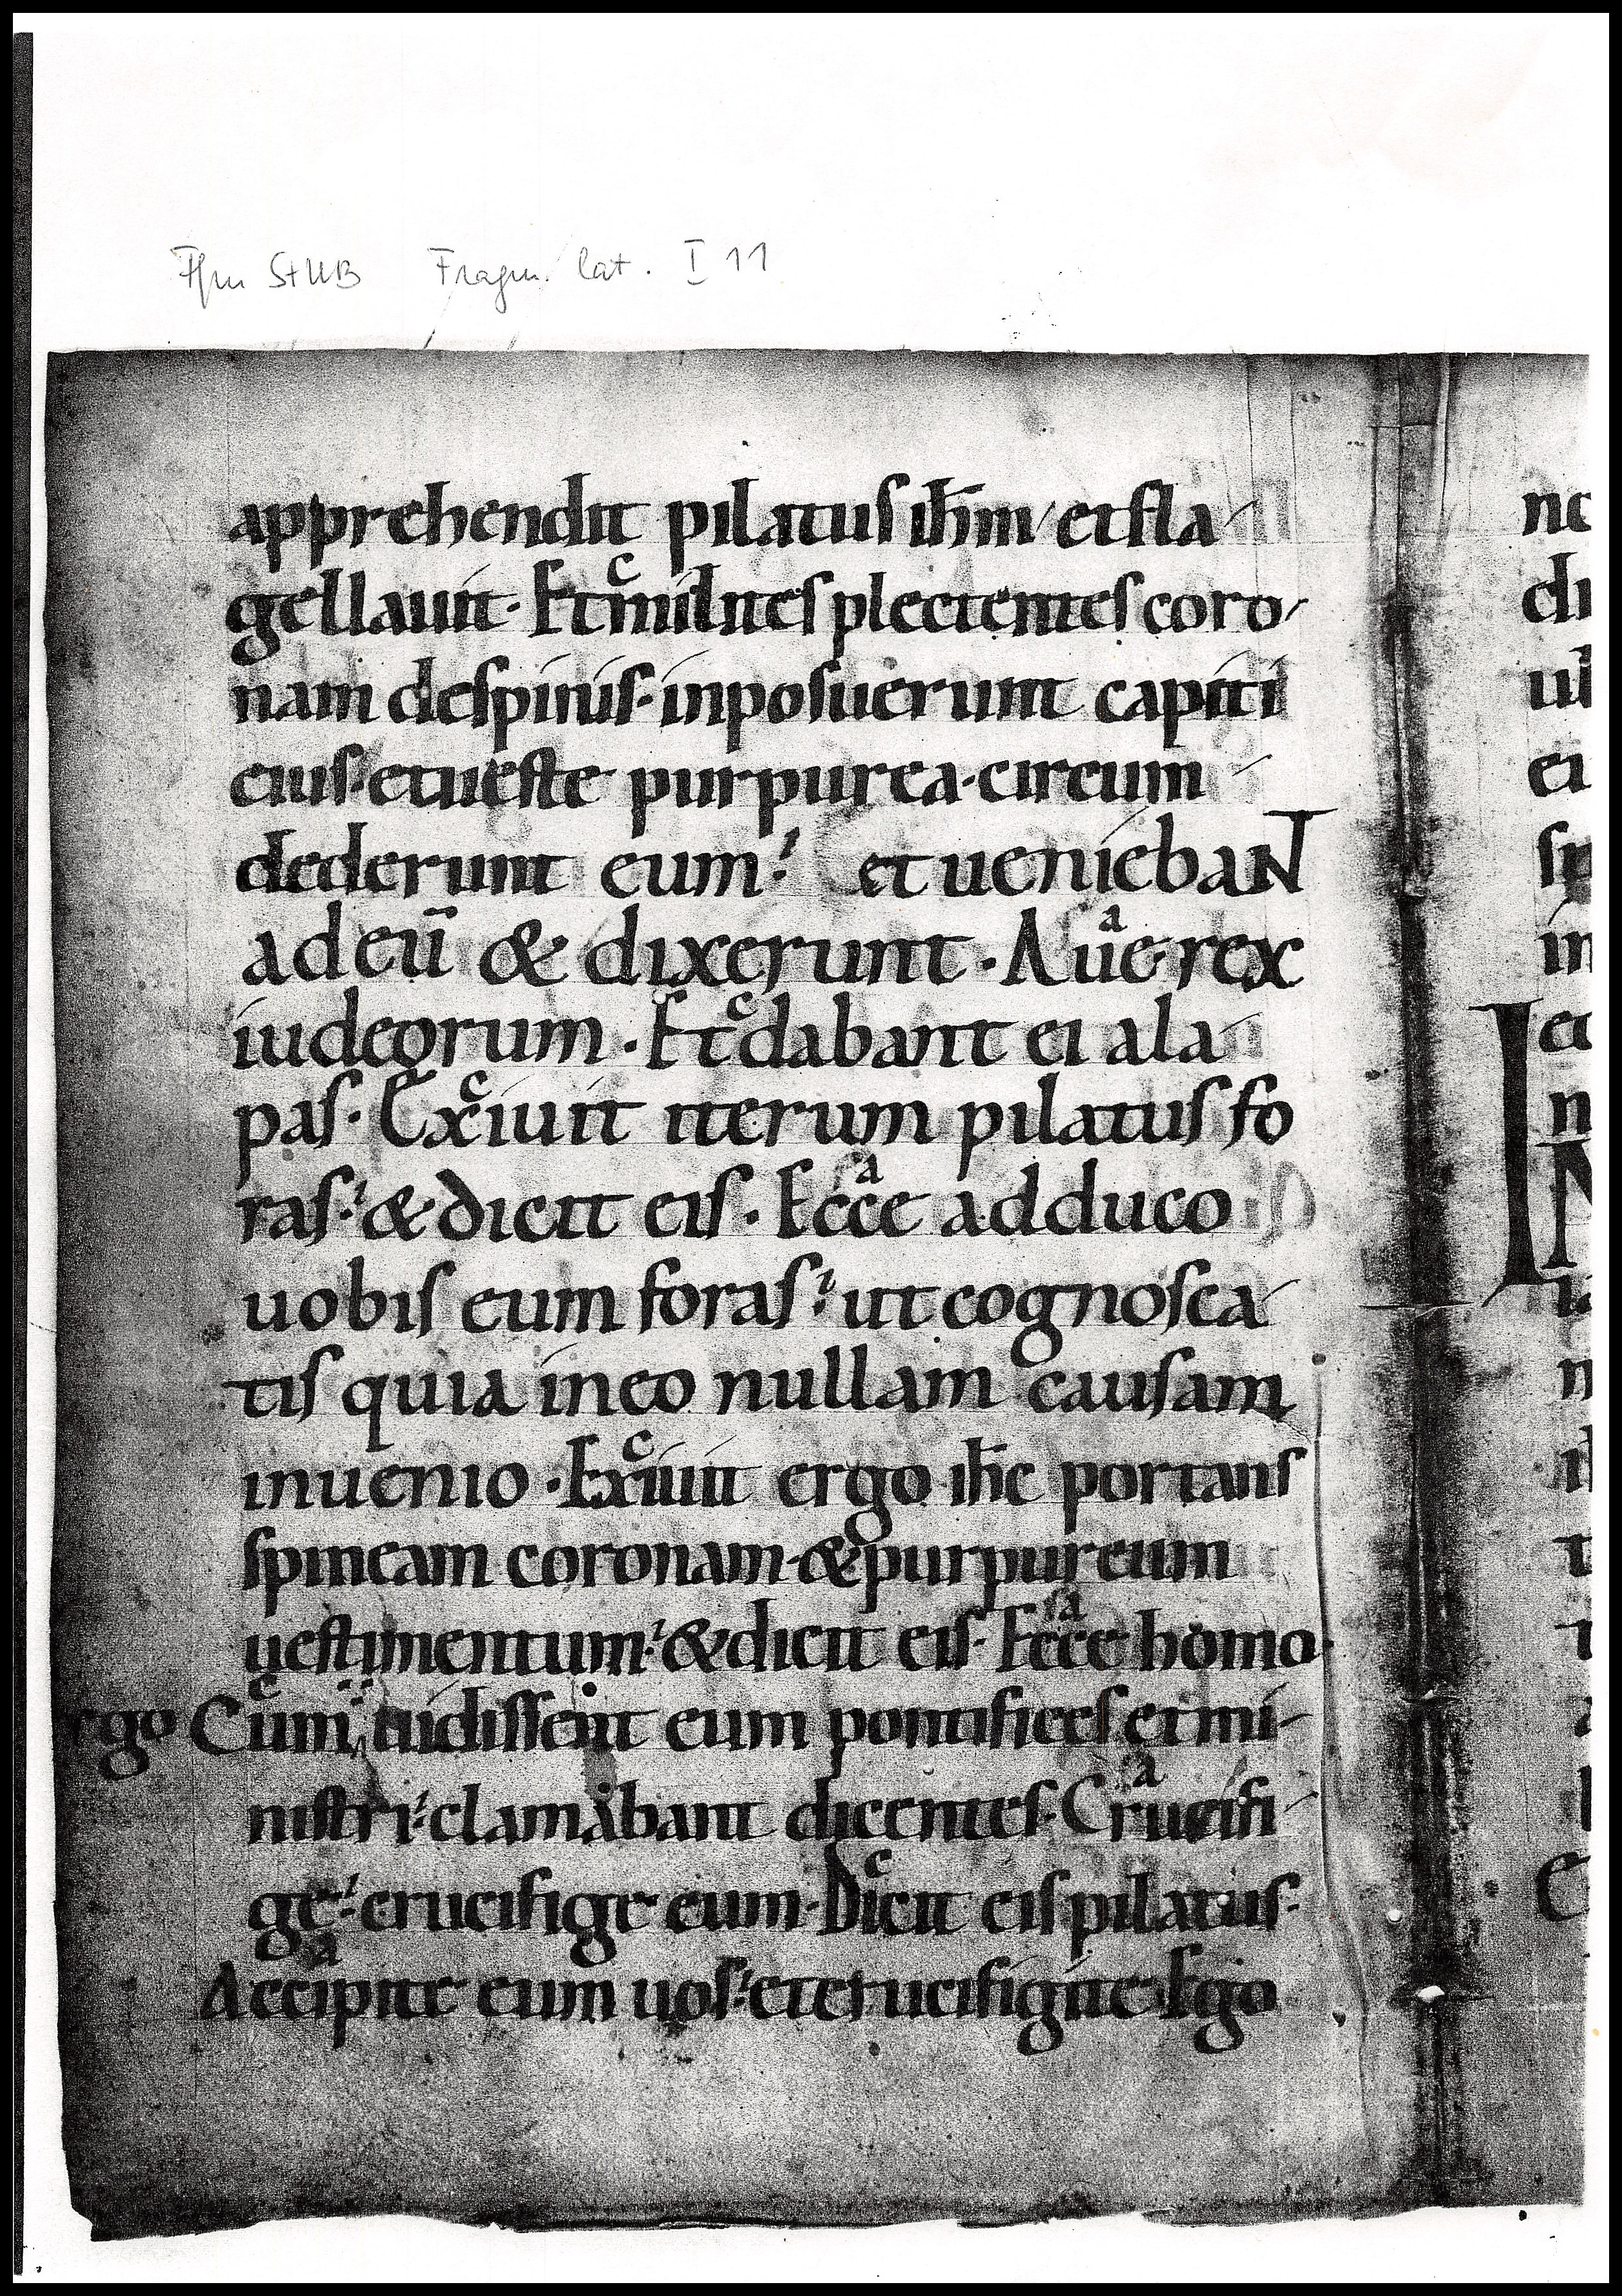 Ffm StUB Fragm. lat. I 11
apprehendit pilatus ihm et fla-
gellauit. Et c milites plectentes coro-
nam despinis. inposuerunt capiti
eius. et ueste purpurea. circum-
dederunt eum. et uenieban T
ad eū & dixerunt. A a ue rex
iudeorum. Et c dabant ei ala-
pas. Ex c iuit iterum pilatus fo
ras. & dicit eis. Ecce a adduco
uobis eum foras. ut cognosca-
tis quia in eo nullam causam
inuenio. Ex c iuit ergo ihc portans
spineam coronam & purpureum
uestimentum. & dicit eis. Ecce sa homo.
ergo Cum c uidissent eum pontifices et mi-
nistri. clamabant dicentes. Cru a cifi-
ge. crucifige eum. Di c cit eis pilatus.
Acci a pite eum uos. et crucifigite. Ego
nc
di
ul
ei
in
et
IN